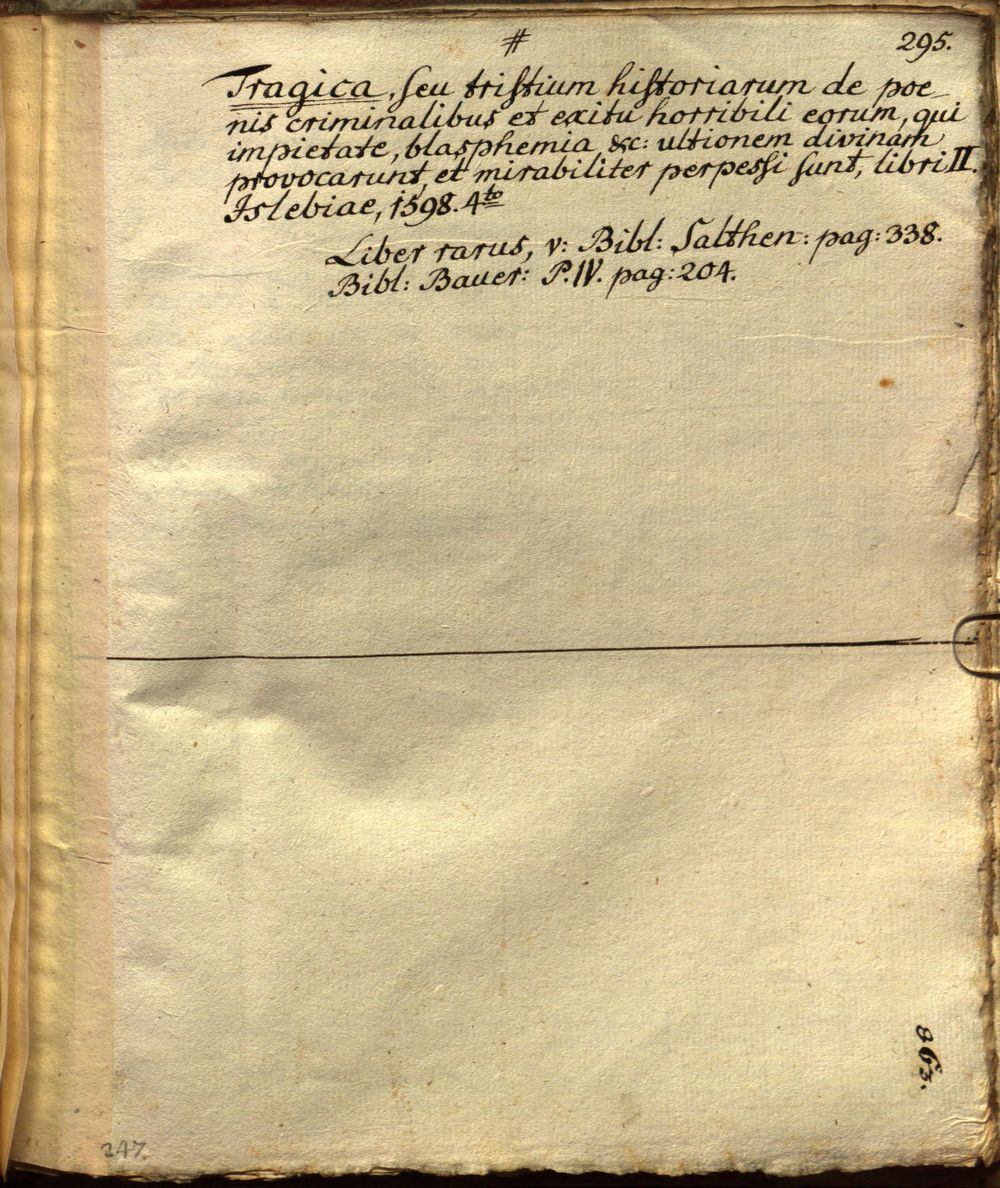 #
295.
Tragica, seu tristium historiarum de poe
nis criminalibus et exitu horribili eorum, qui
impietate, blasphemia &c: ultionem divinam
provocarunt, et mirabiliter perpessi sunt, libri II.
Islebiae, 1598. 4to
Liber rarus, v: Bibl: Salthen: pag: 338.
Bibl: Bauer: P. IV. pag: 204.
863.
247.